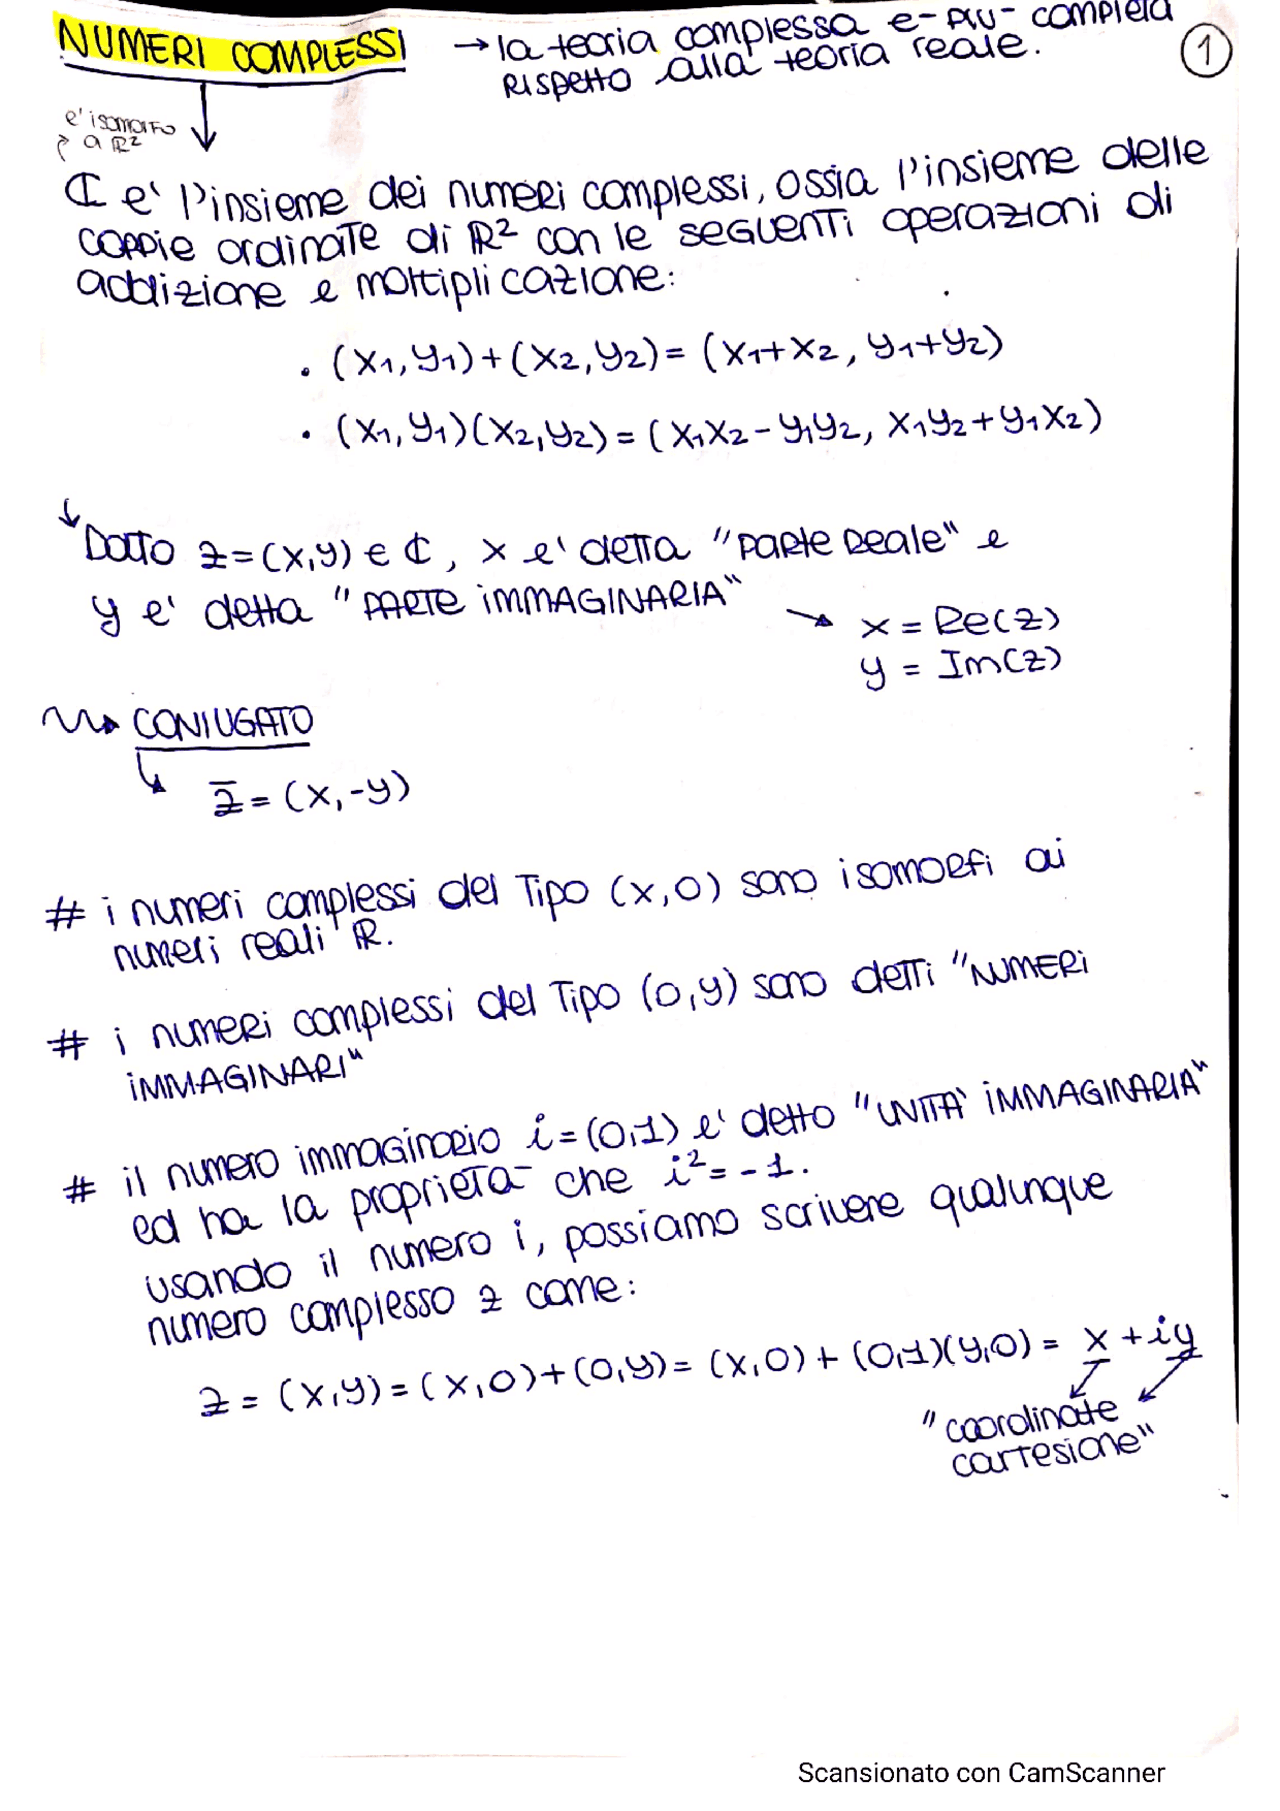 NUMERI COMPLESSI → la teoria complessa e- più- completa
rispetto alla teoria reale.
1
e' isomorfo
a ℝ²
ℂ e' l'insieme dei numeri complessi, ossia l'insieme delle
coppie ordinate di ℝ² con le seguenti operazioni di
addizione e moltiplicazione:
• (x₁,y₁)+(x₂,y₂)= (x₁+x₂, y₁+y₂)
• (x₁,y₁)(x₂,y₂)= (x₁x₂-y₁y₂, x₁y₂+y₁x₂)
↓ Dato z=(x,y) ∈ ℂ, x e' detta "parte reale" e
y e' detta "PARTE IMMAGINARIA"
→ x = Re(z)
y = Im(z)
CONIUGATO
z̄ = (x,-y)
# i numeri complessi del tipo (x,0) sono isomorfi ai
numeri reali ℝ.
# i numeri complessi del tipo (0,y) sono detti "NUMERI
IMMAGINARI"
# il numero immaginario i=(0,1) e' detto "UNITA' IMMAGINARIA"
ed ha la proprieta- che i²=-1.
usando il numero i, possiamo scrivere qualunque
numero complesso z come:
z = (x,y)=(x,0)+(0,y)= (x,0)+(0,1)(y,0)= x+iy
"coordinate
cartesiane"
Scansionato con CamScanner